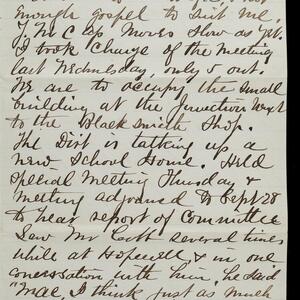 enough gospel to suit me.
Y.M.C.A. moves slow as yet.
I took Charge of the meeting
last Wednesday, only 5 out.
We are to occupy the small
building at the junction next
to the Blacksmith Shop.
The Dist is talking up a
new School House. Held
special meeting Thursday &
meeting adjourned to Sept 28
to hear report of Committee
Saw Mr several times
while at Hopewell & in one
conversation with him, he said
"Mac, I think just as much